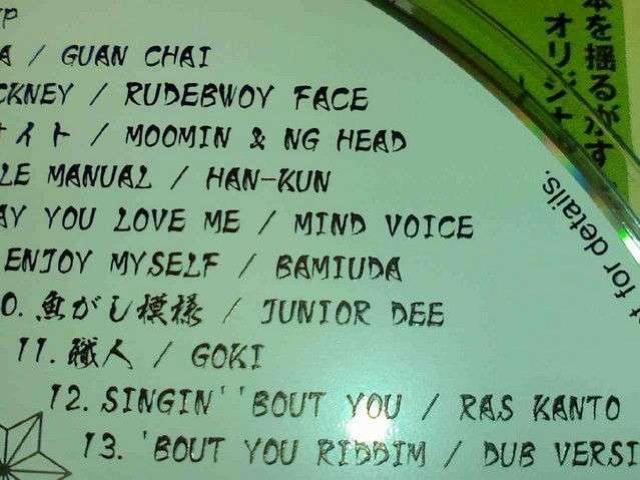 A / GUAN CHAI
CKNEY / RUDEBWOY FACE
ナイト / MOOMIN & NG HEAD
LE MANUAL / HAN-KUN
AY YOU LOVE ME / MIND VOICE
ENJOY MYSELF / BAMIUDA
0. 魚がし模様 / JUNIOR DEE
11. 職人 / GOKI
12. SINGIN' 'BOUT YOU / RAS KANTO
13. 'BOUT YOU RIDDIM / DUB VERSI
t for details.
本を揺るがす
オリジナ